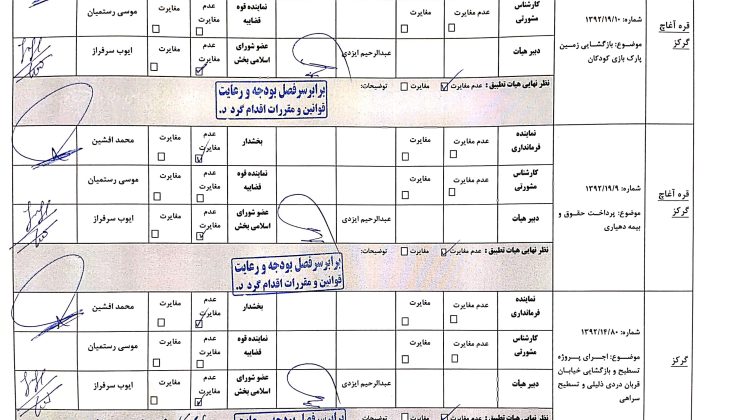 قره آغاچ
گرکز
شماره: ۱۳۹۲/۱۹/۱۰
موضوع: بازگشایی زمین
پارک بازی کودکان
کارشناس
مشورتی
نماینده قوه
قضاییه
عدم مغایرت
مغایرت
موسی رستمیان
دبیر هیأت
عبدالرحیم ایزدی
عضو شورای
اسلامی بخش
عدم
مغایرت
مغایرت
ایوب سرفراز
نظر نهایی هیات تطبیق: عدم مغایرت مغایرت توضیحات:
برابر سرفصل بودجه و رعایت
قوانین و مقررات اقدام گردد.
قره آغاچ
گرکز
شماره: ۱۳۹۲/۱۹/۹
موضوع: پرداخت حقوق و
بیمه دهیاری
نماینده
فرمانداری
عدم مغایرت
مغایرت
بخشدار
عدم
مغایرت
مغایرت
محمد افشین
کارشناس
مشورتی
عدم مغایرت
مغایرت
نماینده قوه
قضاییه
عدم
مغایرت
مغایرت
موسی رستمیان
دبیر هیأت
عبدالرحیم ایزدی
عضو شورای
اسلامی بخش
عدم
مغایرت
مغایرت
ایوب سرفراز
نظر نهایی هیات تطبیق: عدم مغایرت مغایرت توضیحات:
برابر سرفصل بودجه و رعایت
قوانین و مقررات اقدام گردد.
گرکز
شماره: ۱۳۹۲/۱۴/۸۰
موضوع: اجرای پروژه
تسطیح و بازگشایی خیابان
قربان دردی ذلیلی و تسطیح
سراهی
نماینده
فرمانداری
عدم مغایرت
مغایرت
بخشدار
عدم
مغایرت
مغایرت
محمد افشین
کارشناس
مشورتی
عدم مغایرت
مغایرت
نماینده قوه
قضاییه
عدم
مغایرت
مغایرت
موسی رستمیان
دبیر هیأت
عبدالرحیم ایزدی
عضو شورای
اسلامی بخش
عدم
مغایرت
مغایرت
ایوب سرفراز
نظر نهایی هیات تطبیق: عدم مغایرت مغایرت توضیحات:
برابر سرفصل بودجه و رعایت